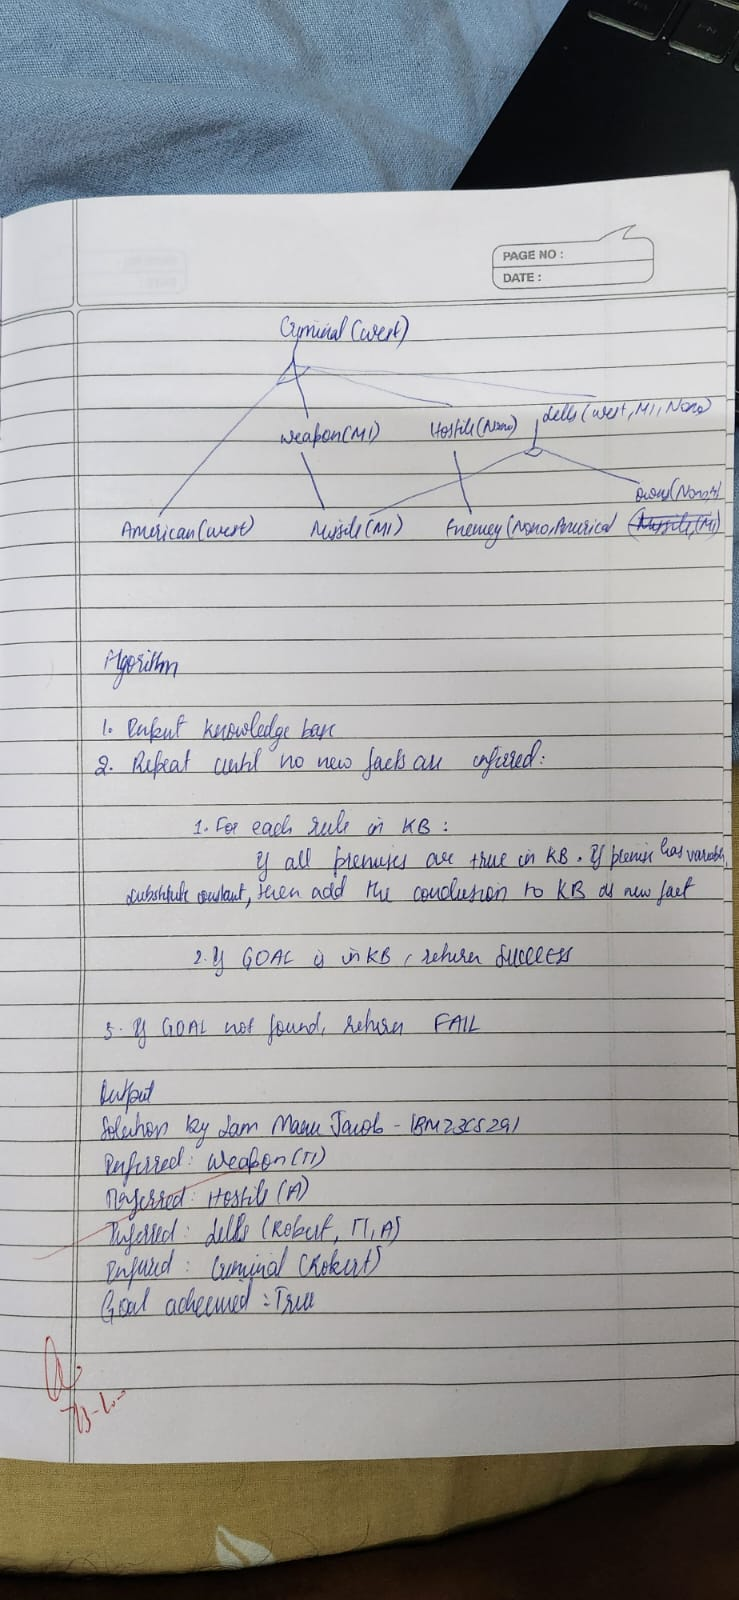 PAGE NO :
DATE :
Criminal (West)
Weapon (M1)
Hostile (Nono)
Sells (West, M1, Nono)
Owns (Nono,
American (West)
Missile (M1)
Enemey (Nono, American
Missile (M1)
Algorithm
1. Input knowledge base
2. Repeat until no new facts are inferred:
1. For each rule in KB :
If all premises are true in KB. If premise has variable,
substitute constant, then add the conclusion to KB as new fact
2. If GOAL is in KB, return SUCCESS
3. If GOAL not found, return FAIL
Output
Solution by Sam Manu Jacob - 1BM23CS291
Inferred: Weapon (T1)
Inferred: Hostile (A)
Inferred: Sells (Robert, T1, A)
Inferred: Criminal (Robert)
Goal acheemed : True